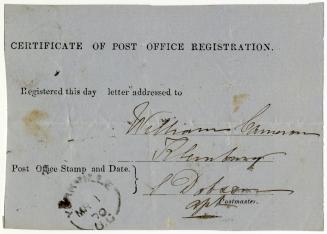 CERTIFICATE OF POST OFFICE REGISTRATION.
Registered this day letter addressed to
William Cameron
Post Office Stamp and Date.
YORKVILLE
MR 1
70
U.C
S Dobson
Postmaster.